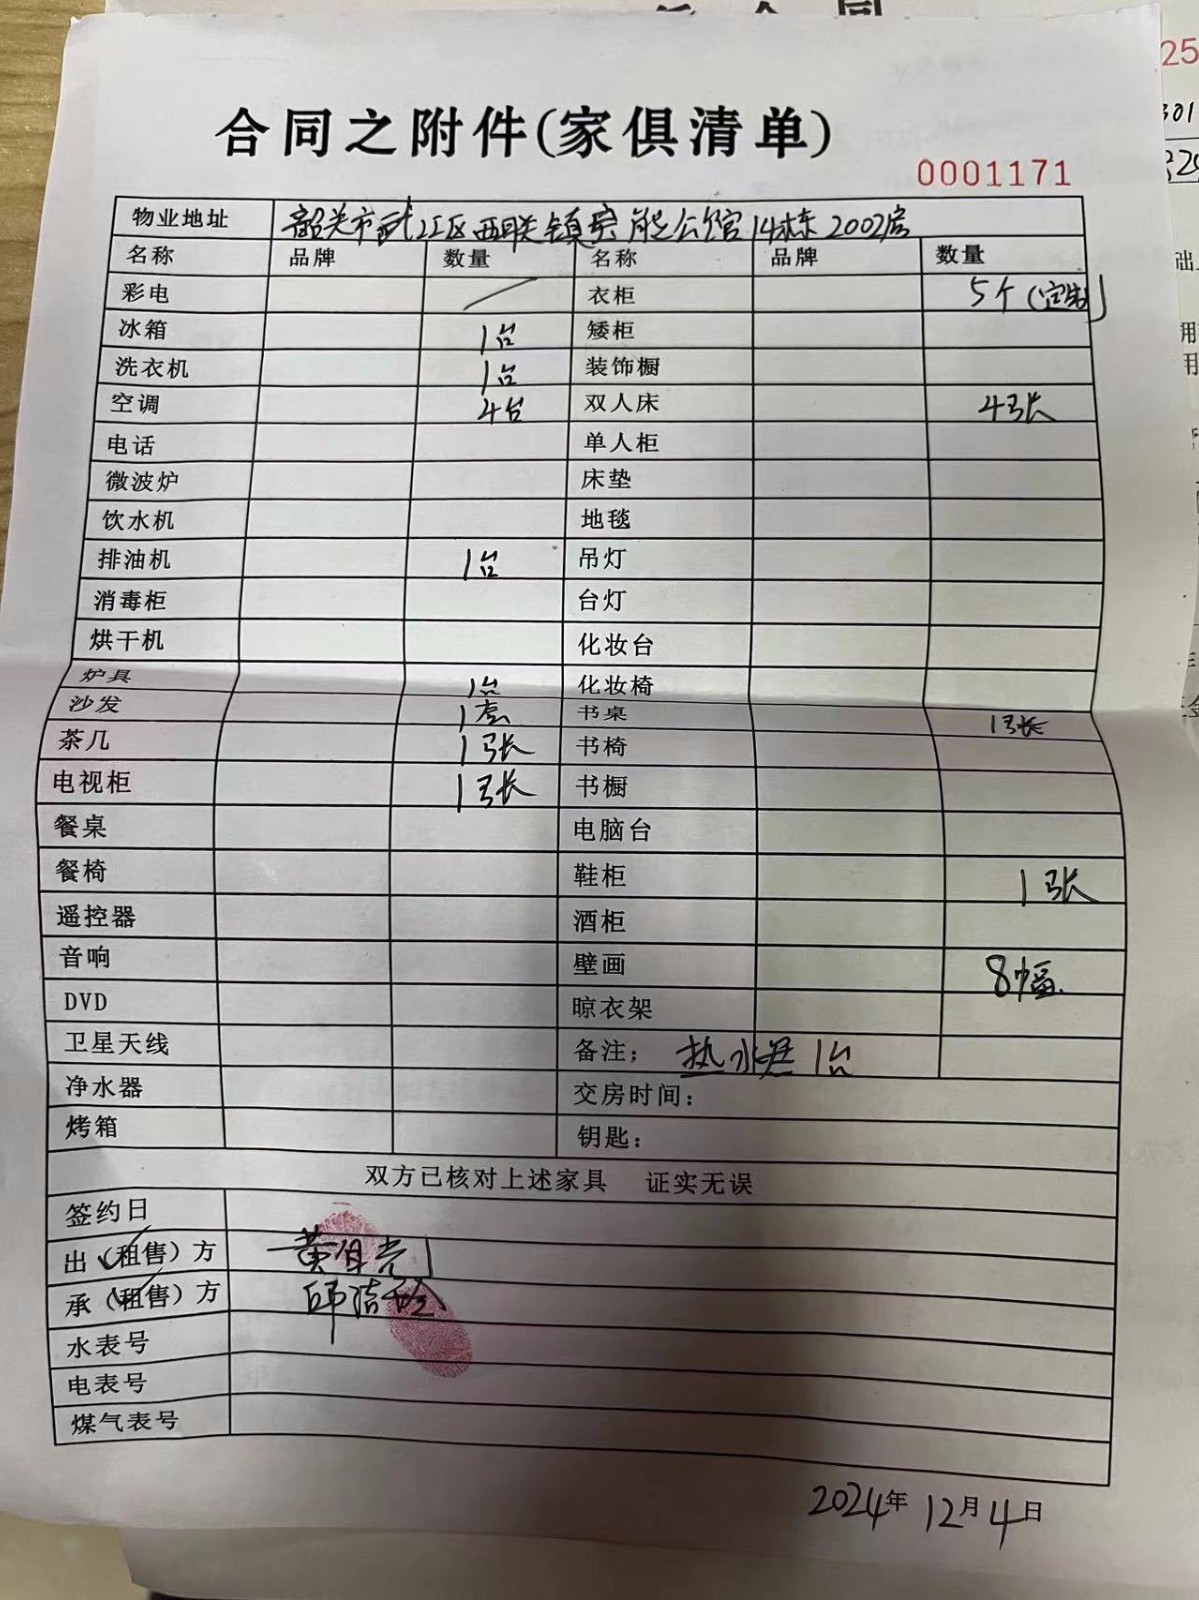 合同之附件(家俱清单)
0001171
物业地址 韶关市武江区西联镇 公馆14栋2002房
名称 品牌 数量 名称 品牌 数量
彩电 衣柜 5个(定制)
冰箱 1台 矮柜
洗衣机 1台 装饰橱
空调 4台 双人床 4张
电话 单人柜
微波炉 床垫
饮水机 地毯
排油机 1台 吊灯
消毒柜 台灯
烘干机 化妆台
炉具 1台 化妆椅
沙发 1套 书桌 1张
茶几 1张 书椅
电视柜 1张 书橱
餐桌 电脑台
餐椅 鞋柜 1张
遥控器 酒柜
音响 壁画 8幅
DVD 晾衣架
卫星天线 备注: 热水器1台
净水器 交房时间:
烤箱 钥匙:
双方已核对上述家具 证实无误
签约日
出(租售)方 黄
承(租售)方 邱洁
水表号
电表号
煤气表号
2024年12月4日
25
301